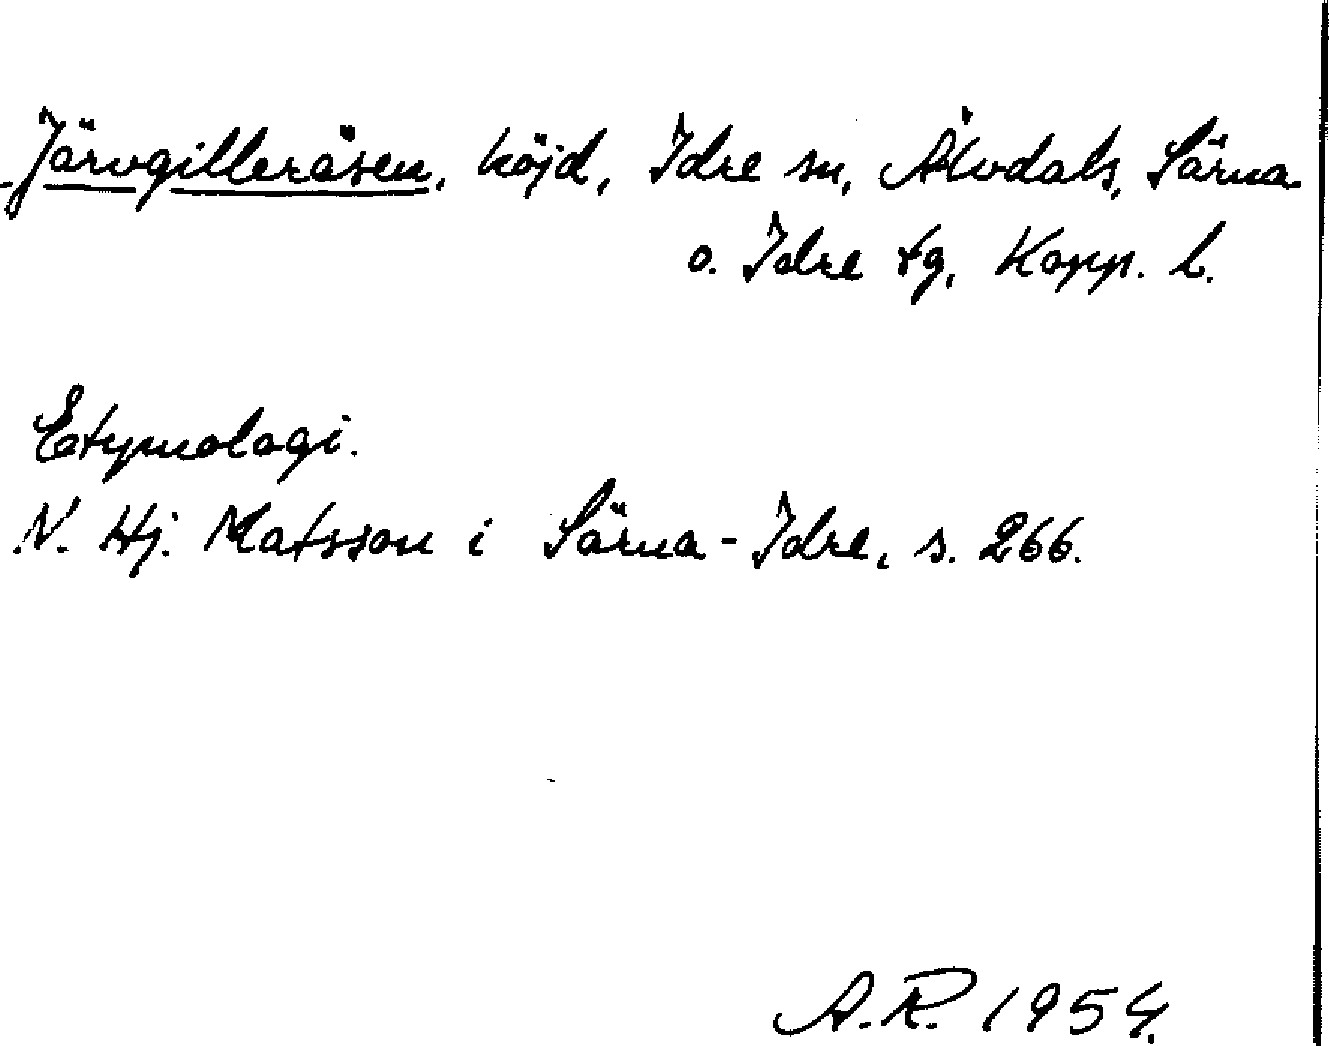 Järvgilleråsen, höjd, Idre sn, Älvdals, Särna
o. Idre tg, Kopp. l.
Etymologi.
N. Hj. Matsson i Särna-Idre, s. 266.
A.R. 1954.